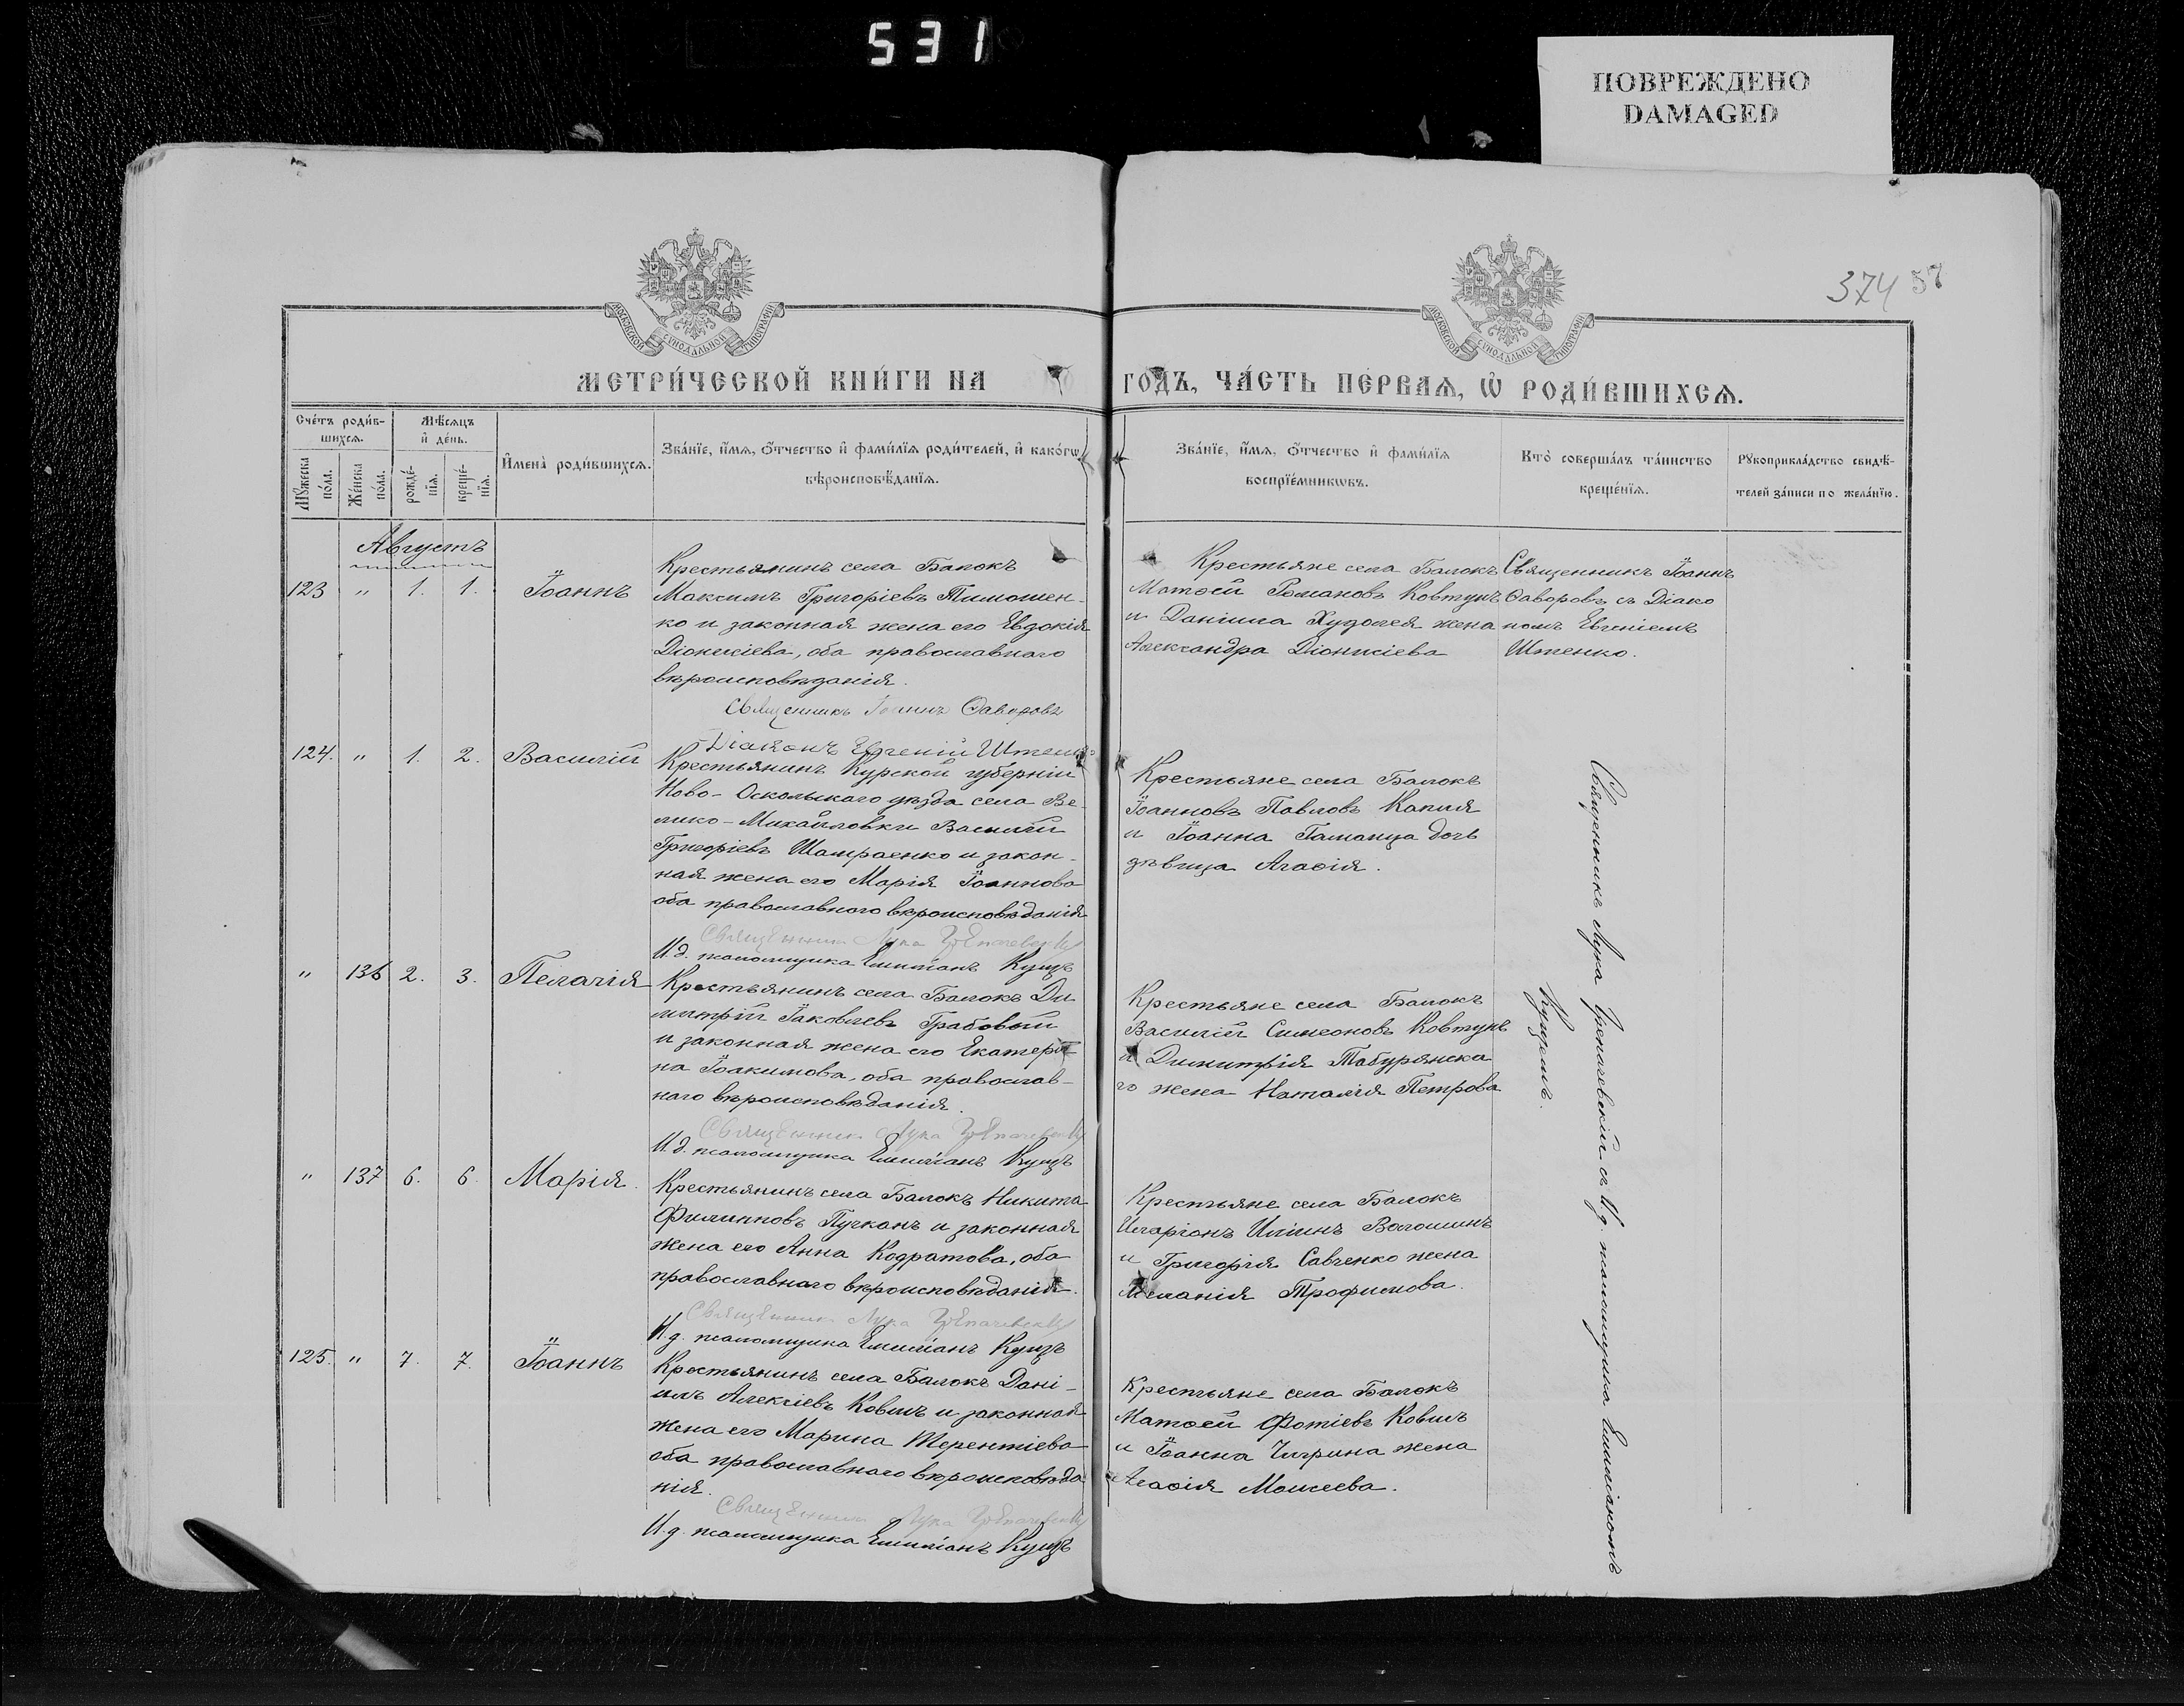 531
ПОВРЕЖДЕНО
DAMAGED
374 57
МОСКОВСКОЙ СѴНОДАЛЬНОЙ ТИПОГРАФІИ
МОСКОВСКОЙ СѴНОДАЛЬНОЙ ТИПОГРАФІИ
МЕТРИ́ЧЕСКОЙ КНИ́ГИ НА
ГОДЪ, ЧА́СТЬ ПЕ́РВАЯ, Ѡ РОДИ́ВШИХСѦ.
Сче́тъ роди́в-
шихсѧ.
Мꙋ́жеска по́ла.
Же́нска по́ла.
Мѣ́сѧцъ
и҆ де́нь.
рожде́-
нїѧ.
креще́-
нїѧ.
И҆мена̀ роди́вшихсѧ.
Зва́нїе, и҆́мѧ, ѻ҆́тчество и҆ фами́лїѧ роди́телей, и҆ како́гѡ
вѣроисповѣ́данїѧ.
Зва́нїе, и҆́мѧ, ѻ҆́тчество и҆ фами́лїѧ
воспрїе́мникѡвъ.
Кто̀ соверша́лъ та́инство
креще́нїѧ.
Рꙋкоприкла́дство свидѣ́-
телей за́писи по жела́нїю.
Августъ
123 " 1. 1. Іоаннъ
Крестьянинъ села Балокъ
Максимъ Григоріевъ Тимошен-
ко и законная жена его Евдокія
Діонисіева, оба православнаго
вѣроисповѣданія.
Священникъ Іоаннъ Ѳаворовъ
Діаконъ Евгеній Штенко
Крестьяне села Балокъ
Матѳей Романовъ Ковтунъ
и Даніила Худолея жена
Александра Діонисіева
Священникъ Іоаннъ
Ѳаворовъ съ Діако
номъ Евгеніемъ
Штенко.
124. " 1. 2. Василій
Крестьянинъ Курской губерніи
Ново-Оскольскаго уѣзда села Ве-
лико-Михайловки Василій
Григоріевъ Шамраенко и закон-
ная жена его Марія Іоаннова
оба православнаго вѣроисповѣданія
Священникъ Лука
И.д. псаломщика Емиліанъ Кущъ
Крестьяне села Балокъ
Іоанновъ Павловъ Капля
и Іоанна Гаманца дочь
дѣвица Агаѳія.
" 136 2. 3. Пелагія
Крестьянинъ села Балокъ Ди
митрій Іаковлевъ Грабовый
и законная жена его Екатери
на Іоакимова, оба православ-
наго вѣроисповѣданія.
Священникъ Лука
И.д. псаломщика Емиліанъ Кущъ
Крестьяне села Балокъ
Василій Симеоновъ Ковтунъ
и Димитрія Табурянска
го жена Наталія Петрова
" 137 6. 6. Марія.
Крестьянинъ села Балокъ Никита
Филипповъ Пучканъ и законная
жена его Анна Кодратова, оба
православнаго вѣроисповѣданія.
Священникъ Лука
И.д. псаломщика Емиліанъ Кущъ
Крестьяне села Балокъ
Иларіонъ Иліинъ Волошинъ
и Григорія Савченко жена
Меланія Трофимова.
125. " 7. 7. Іоаннъ
Крестьянинъ села Балокъ Дані-
илъ Алексіевъ Ковшъ и законная
жена его Марина Терентіева
оба православнаго вѣроисповѣда
нія.
Священникъ Лука
И.д. псаломщика Емиліанъ Кущъ
Крестьяне села Балокъ
Матѳей Фотіевъ Ковшъ
и Іоанна Чигрина жена
Агаѳія Моисеева.
Священникъ Лука съ И.д. псаломщика Емиліаномъ
Кущемъ.